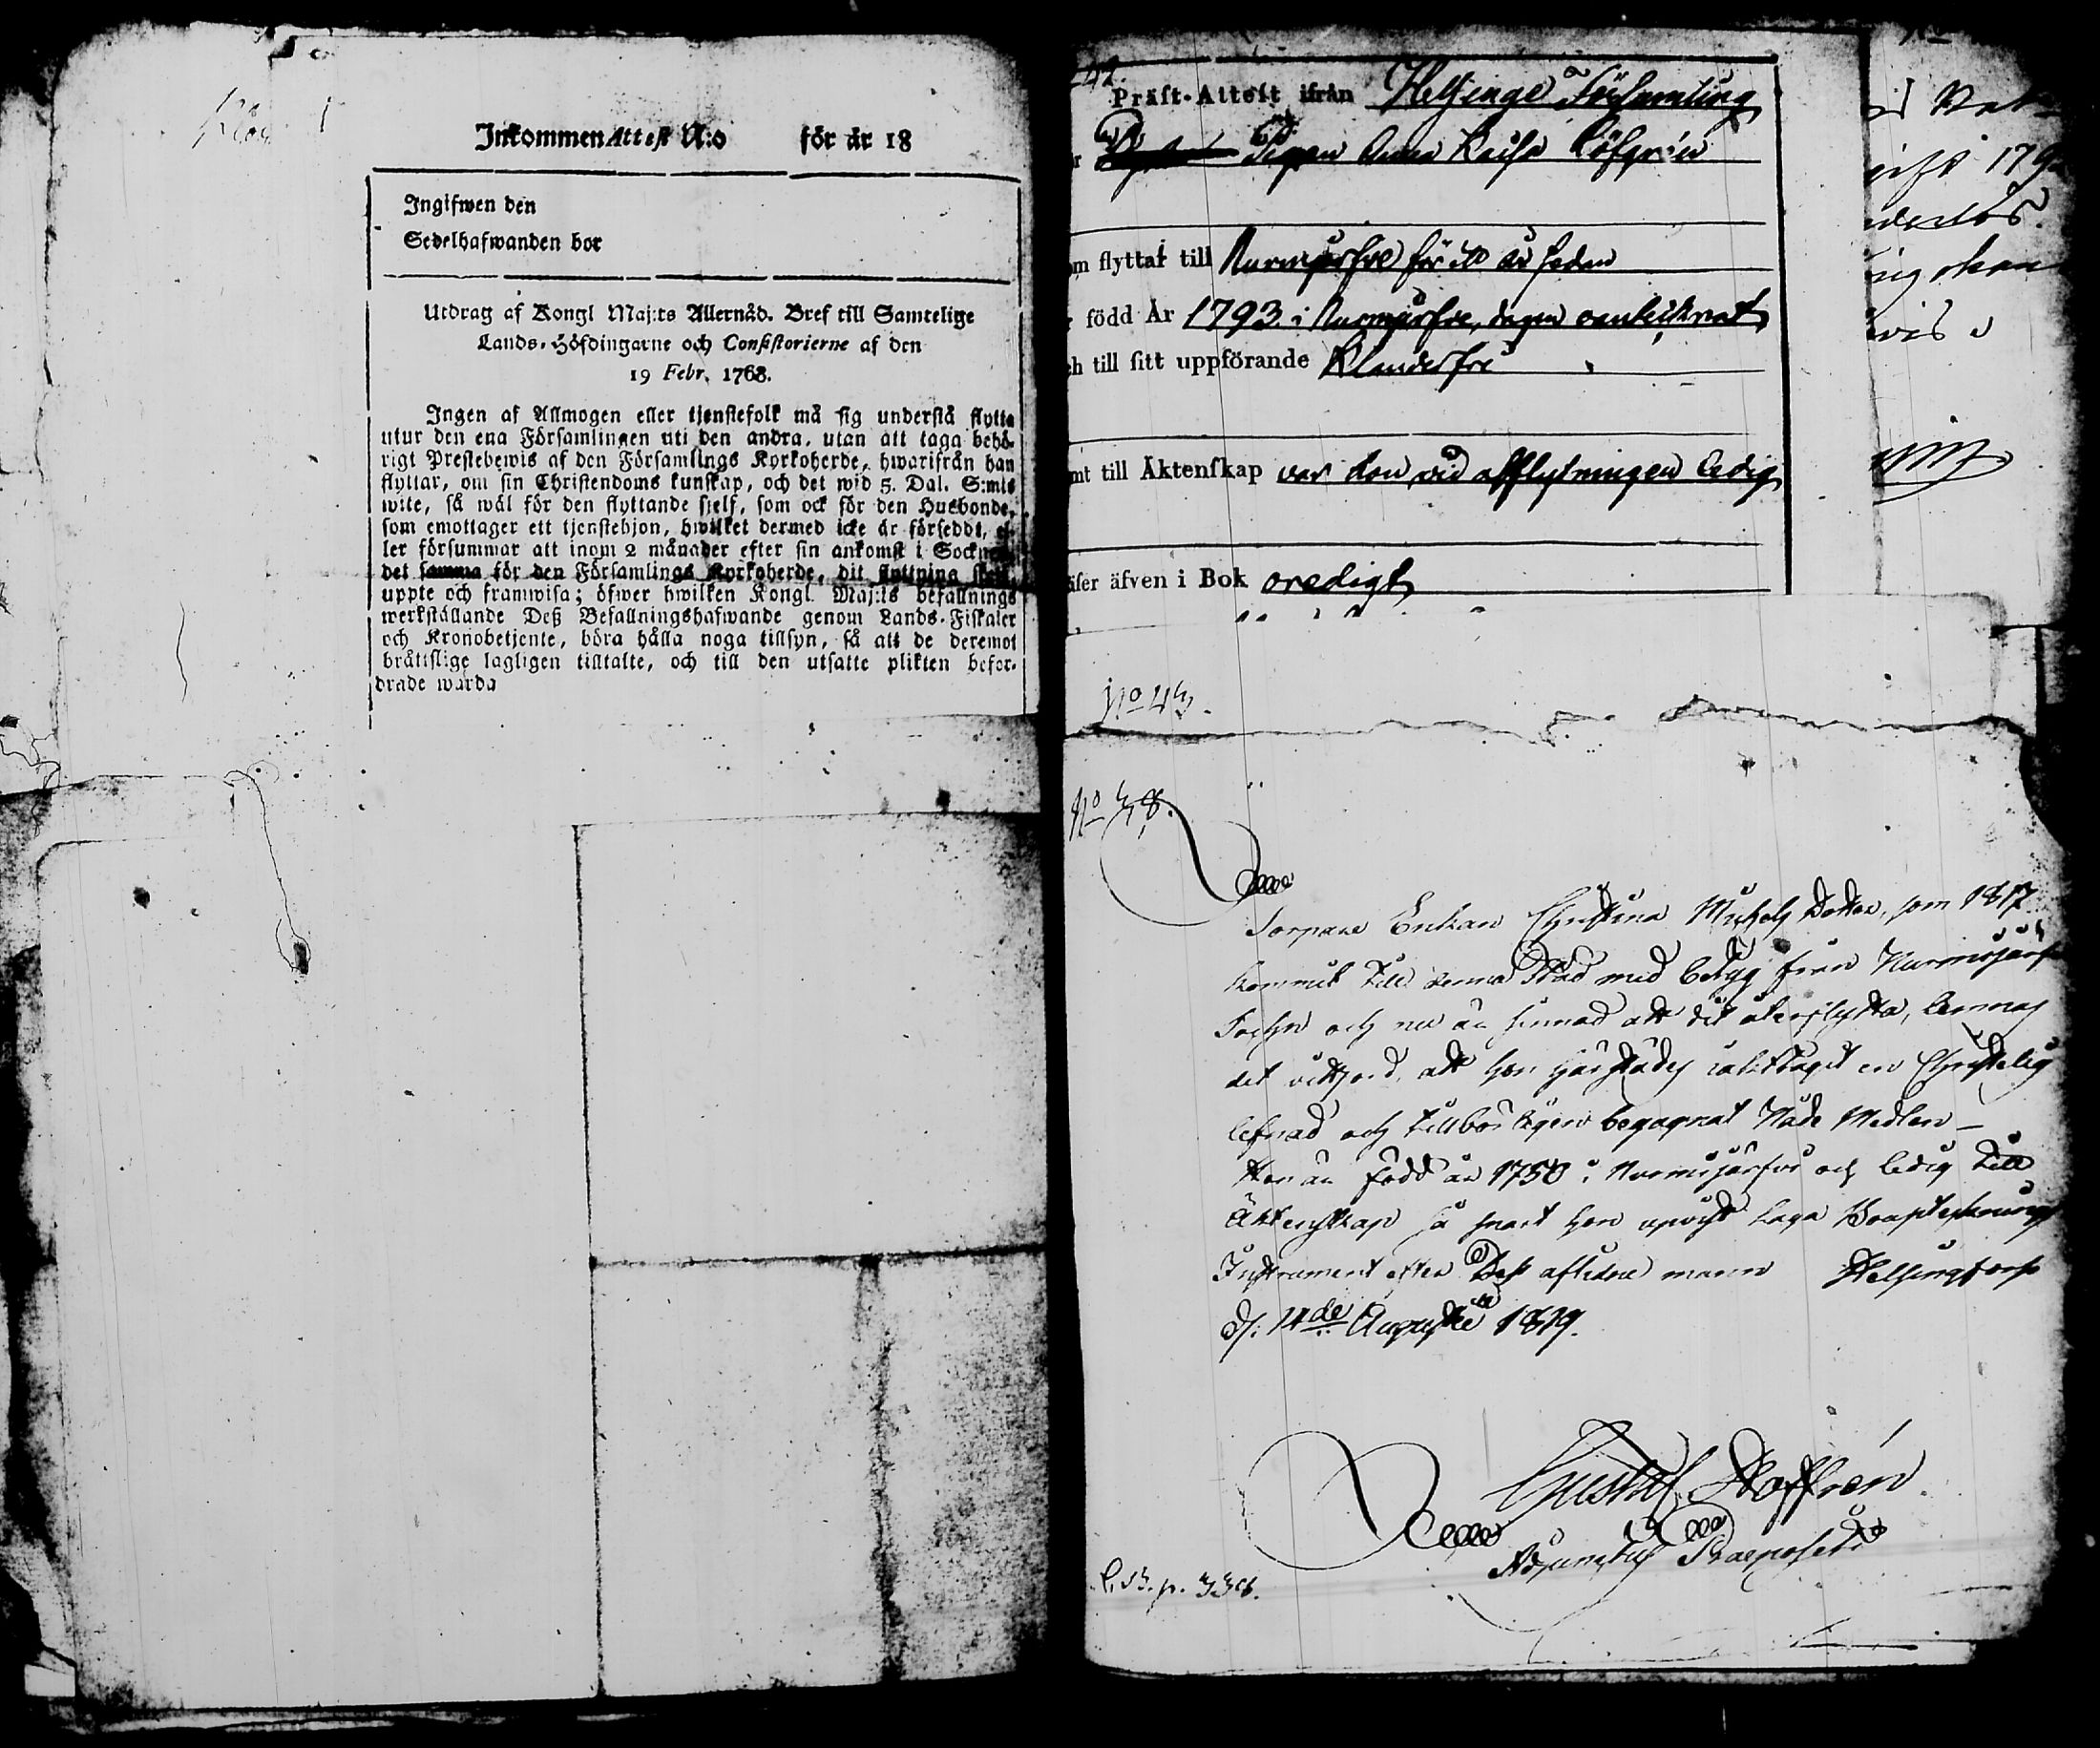 Inkommen Attest N:o för år 18
Ingifwen den
Sedelhafwanden bor
Utdrag af Kongl Maj:ts Allernåd. Bref till Samtelige
Lands-Höfdingarne och Consistorierne af den
19 Febr. 1768.
Ingen af Allmogen eller tjenstefolk må sig understå flytta
utur den ena Församlingen uti den andra, utan att taga behö-
rigt Prestebewis af den Församlings Kyrkoherde, hwarifrån han
flyttar, om sin Christendoms kunskap, och det wid 5. Dal. S:mts
wite, så wäl för den flyttande sjelf, som ock för den Husbonde,
som emottager ett tjenstehjon, hwilket dermed icke är försedt, el-
ler försummar att inom 2 månader efter sin ankomst i Socknen
det samma för den Församlings Kyrkoherde, dit flyttning skett,
uppte och framwisa; öfwer hwilken Kongl. Maj:ts befallnings
werkställande Deß Befallningshafwande genom Lands-Fiskaler
och Kronobetjente, böra hålla noga tillsyn, så att de deremot
bråttslige lagligen tilltalte, och till den utsatte plikten befor-
drade warda
42.
Präst-Attest ifrån Helsinge Församling
Pigan Anna Kaisa Löfgrén
om flyttat till Nurmijärfvi för ett år sedan
född År 1793. i Nurmijärfvi, dagen oantecknat
ch till sitt uppförande Klanderfri
mt till Äktenskap var hon vid afflyttningen ledig
äser äfven i Bok oredigt
No 43.
No 38.
Torpare Enkan Christina Michels Dotter, som 1817
kommit till denna Stad med betyg från Nurmijärfvi
Sochn och nu är sinnad att dit återflytta, lemnas
det vittsord, att hon härstädes iakttagit en Christelig
lefnad och tillbörligen begagnat Nåde Medlen —
Hon är född år 1750 i Nurmijärfvi och ledig till
Äktenskap så snart hon upvist laga
Instrument efter Dess aflidne man Helsingfors
d: 14de Augusti 1819.
Gustaf
Adjunctus Praepositi
p. 338.